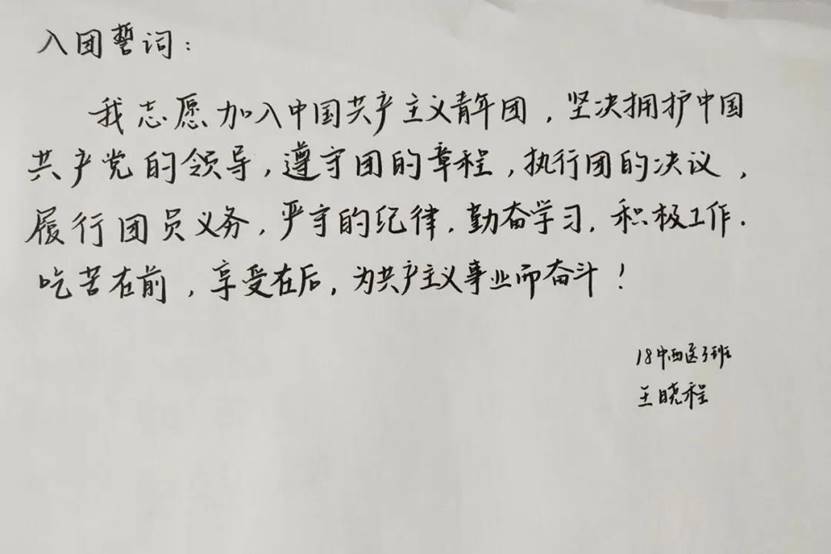 入团誓词：
我志愿加入中国共产主义青年团，坚决拥护中国
共产党的领导，遵守团的章程，执行团的决议，
履行团员义务，严守的纪律，勤奋学习，积极工作.
吃苦在前，享受在后，为共产主义事业而奋斗！
18中西医3班
王晓程